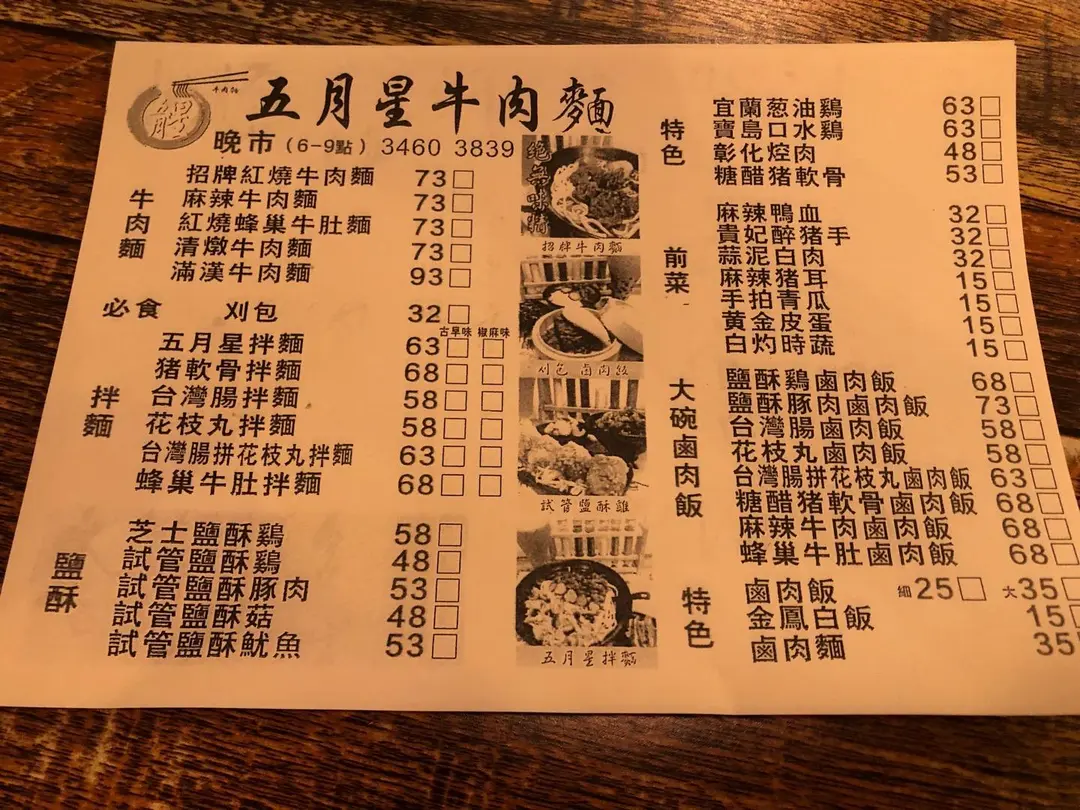 五月星牛肉麵
牛肉麵
晚市（6-9點）3460 3839
牛肉麵
招牌紅燒牛肉麵 73□
麻辣牛肉麵 73□
紅燒蜂巢牛肚麵 73□
清燉牛肉麵 73□
滿漢牛肉麵 93□
必食 刈包 32□
古早味 椒麻味
拌麵
五月星拌麵 63□ □
猪軟骨拌麵 68□ □
台灣腸拌麵 58□ □
花枝丸拌麵 58□ □
台灣腸拼花枝丸拌麵 63□ □
蜂巢牛肚拌麵 68□ □
鹽酥
芝士鹽酥鷄 58□
試管鹽酥鷄 48□
試管鹽酥豚肉 53□
試管鹽酥菇 48□
試管鹽酥魷魚 53□
招牌牛肉麵
刈包
試管鹽酥雞
五月星拌麵
特色
宜蘭葱油鷄 63□
寶島口水鷄 63□
彰化焢肉 48□
糖醋猪軟骨 53□
前菜
麻辣鴨血 32□
貴妃醉猪手 32□
蒜泥白肉 32□
麻辣猪耳 15□
手拍青瓜 15□
黄金皮蛋 15□
白灼時蔬 15□
大碗鹵肉飯
鹽酥鷄鹵肉飯 68□
鹽酥豚肉鹵肉飯 73□
台灣腸鹵肉飯 58□
花枝丸鹵肉飯 58□
台灣腸拼花枝丸鹵肉飯 63□
糖醋猪軟骨鹵肉飯 68□
麻辣牛肉鹵肉飯 68□
蜂巢牛肚鹵肉飯 68□
特色
鹵肉飯 細25□ 大35□
金鳳白飯 15□
鹵肉麵 35